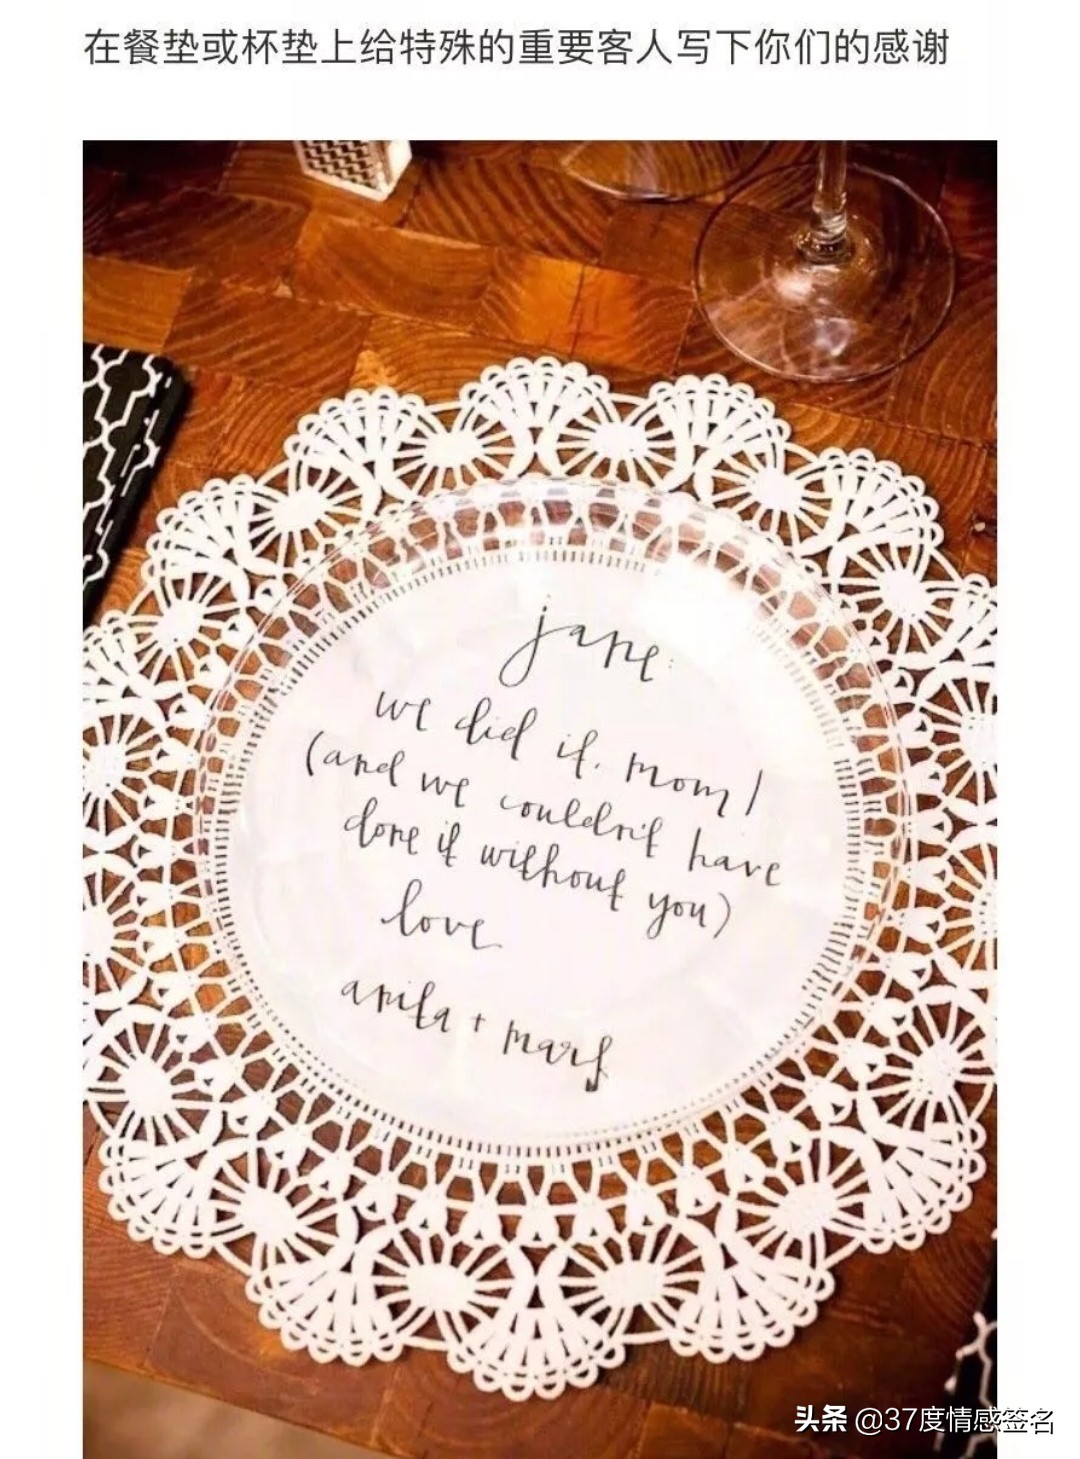 在餐垫或杯垫上给特殊的重要客人写下你们的感谢
jane:
we did it, mom!
(and we couldn't have
done it without you)
love
anita + mark
头条 @37度情感签名